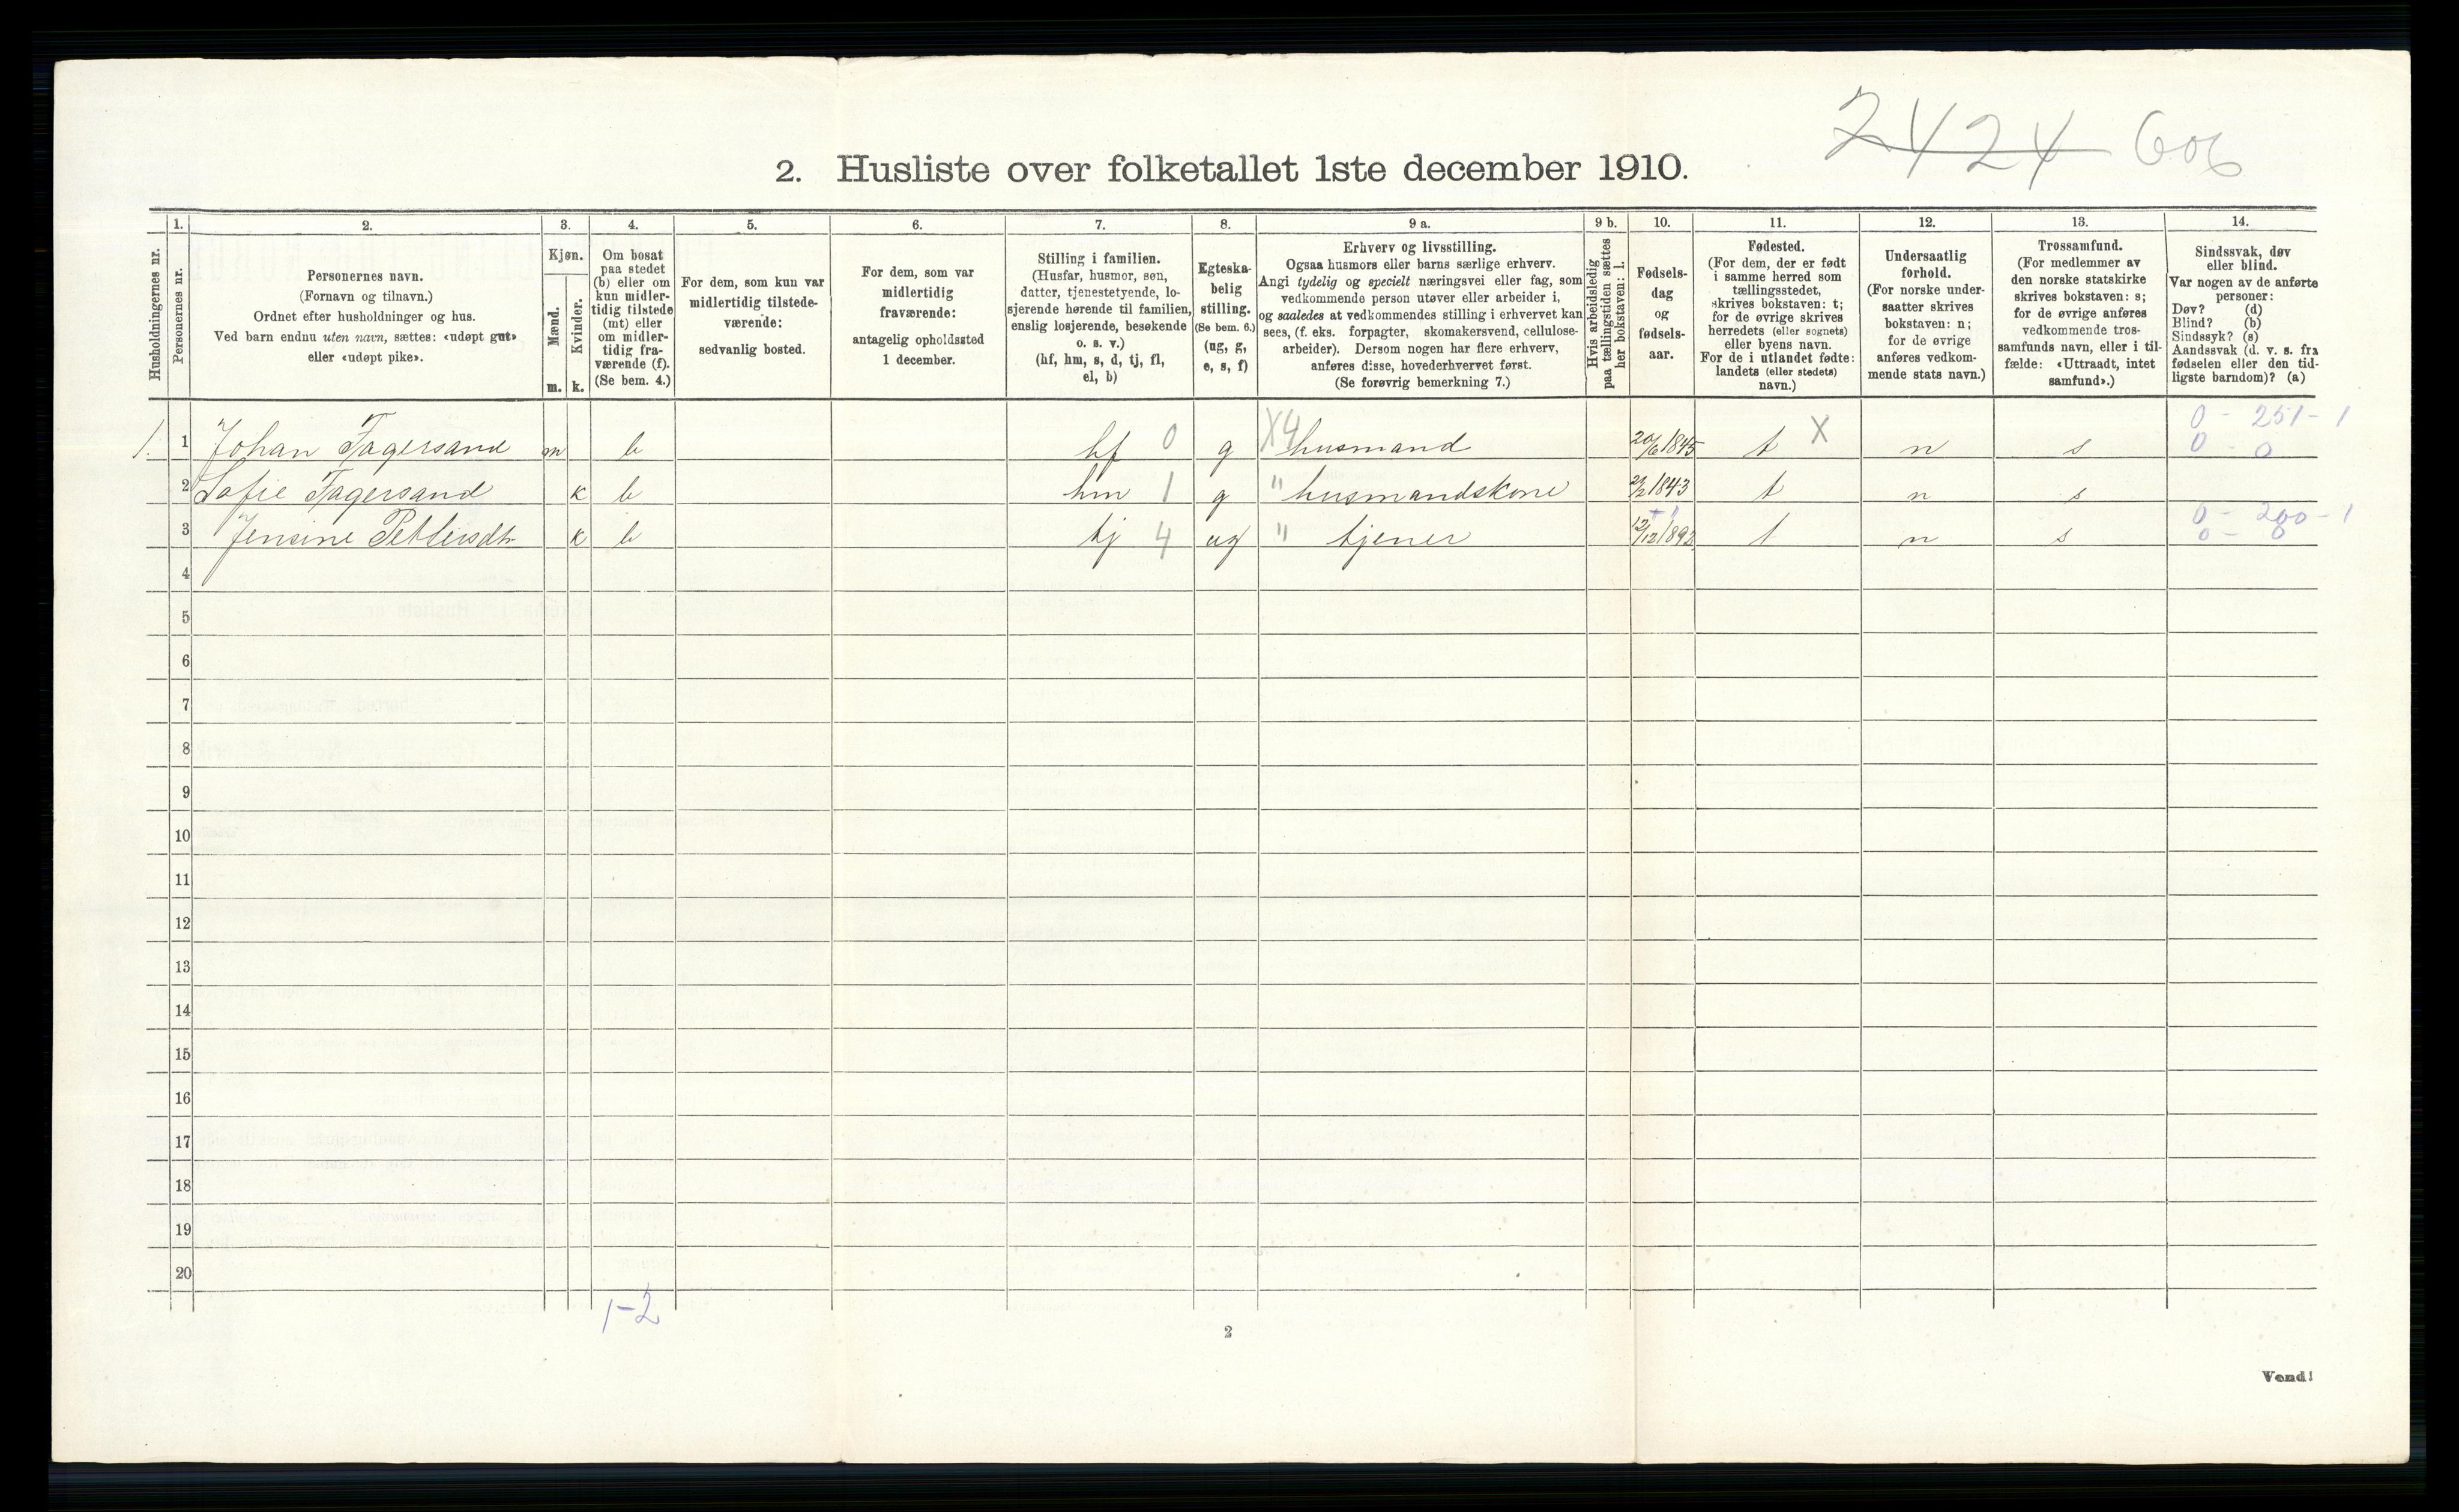 2424 606
2. Husliste over folketallet 1ste december 1910.
1. 2. 3. 4. 5. 6. 7. 8. 9 a. 9 b. 10. 11. 12. 13. 14.
Husholdningernes nr.
Personernes nr.
Personernes navn.
(Fornavn og tilnavn.)
Ordnet efter husholdninger og hus.
Ved barn endnu uten navn, sættes: «udøpt gut»
eller «udøpt pike».
Kjøn.
Mænd.
m.
Kvinder.
k.
Om bosat
paa stedet
(b) eller om
kun midler-
tidig tilstede
(mt) eller
om midler-
tidig fra-
værende (f).
(Se bem. 4.)
For dem, som kun var
midlertidig tilstede-
værende:
sedvanlig bosted.
For dem, som var
midlertidig
fraværende:
antagelig opholdssted
1 december.
Stilling i familien.
(Husfar, husmor, søn,
datter, tjenestetyende, lo-
sjerende hørende til familien,
enslig losjerende, besøkende
o. s. v.)
(hf, hm, s, d, tj, fl,
el, b)
Egteska-
belig
stilling.
(Se bem. 6.)
(ug, g,
e, s, f)
Erhverv og livsstilling.
Ogsaa husmors eller barns særlige erhverv.
Angi tydelig og specielt næringsvei eller fag, som
vedkommende person utøver eller arbeider i,
og saaledes at vedkommendes stilling i erhvervet kan
sees, (f. eks. forpagter, skomakersvend, cellulose-
arbeider). Dersom nogen har flere erhverv,
anføres disse, hovederhvervet først.
(Se forøvrig bemerkning 7.)
Hvis arbeidsledig
paa tællingstiden sættes
her bokstaven: l.
Fødsels-
dag
og
fødsels-
aar.
Fødested.
(For dem, der er født
i samme herred som
tællingsstedet,
skrives bokstaven: t;
for de øvrige skrives
herredets (eller sognets)
eller byens navn.
For de i utlandet fødte:
landets (eller stedets)
navn.)
Undersaatlig
forhold.
(For norske under-
saatter skrives
bokstaven: n;
for de øvrige
anføres vedkom-
mende stats navn.)
Trossamfund.
(For medlemmer av
den norske statskirke
skrives bokstaven: s;
for de øvrige anføres
vedkommende tros-
samfunds navn, eller i til-
fælde: «Uttraadt, intet
samfund».)
Sindssvak, døv
eller blind.
Var nogen av de anførte
personer:
Døv? (d)
Blind? (b)
Sindssyk? (s)
Aandssvak (d. v. s. fra
fødselen eller den tid-
ligste barndom)? (a)
0 - 251 - 1
1. 1 Johan Fagersand m b hf 0 g X4 husmand 20/6 1845 t X n s 0 - 0
2 Sofie Fagersand k b hm 1 g " husmandskone 1843 t n s
0 - 200 - 1
3 Jensine Pettersdtr k b tj 4 ug " tjener 12/12 1892 t n s 0 - 0
4
5
6
7
8
9
10
11
12
13
14
15
16
17
18
19
20
1-2
2
Vend!